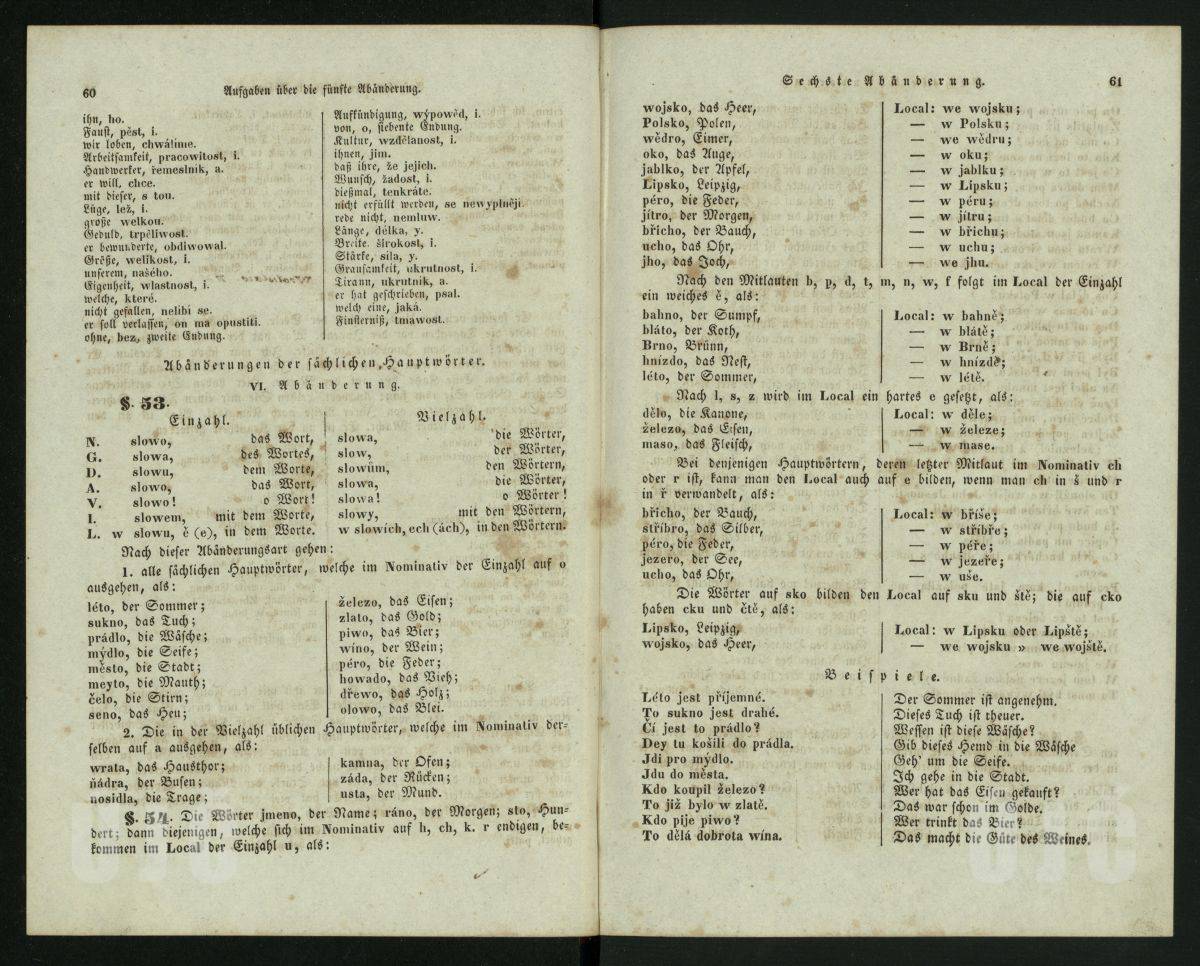 60 Aufgaben über die fünfte Abänderung.
ihn, ho.
Faust, pěst, i.
wir loben, chwálime.
Arbeitsamkeit, pracowitost, i.
Handwerker, řemeslník, a.
er will, chce.
mit dieser, s tou.
Lüge, lež, i.
große welkou.
Geduld, trpěliwost.
er bewunderte, obdiwowal.
Größe, welikost, i.
unserem, našého.
Eigenheit, wlastnost, i.
welche, které.
nicht gefallen, nelibí se.
er soll verlassen, on má opustiti.
ohne, bez, zweite Endung.
Aufkündigung, wýpowěd, i.
von, o, siebente Endung.
Kultur, wzdělanost, i.
ihnen, jim.
daß ihre, že jejich.
Wunsch, žadost, i.
dießmal, tenkráte.
nicht erfüllt werden, se newyplněji
rede nicht, nemluw.
Länge, délka, y.
Breite. širokost, i.
Stärke, síla, y.
Grausamkeit, ukrutnost, i.
Tirann, ukrutník, a.
er hat geschrieben, psal.
welch eine, jaká.
Finsterniß, tmawost.
Abänderungen der sächlichen Hauptwörter.
VI. Abänderung.
§. 53.
Einzahl. Vielzahl.
N. slowo, das Wort, slowa, die Wörter,
G. slowa, des Wortes, slow, der Wörter,
D. slowu, dem Worte, slowům, den Wörtern,
A. slowo, das Wort, slowa, die Wörter,
V. slowo! o Wort! slowa! o Wörter!
I. slowem, mit dem Worte, slowy, mit den Wörtern,
L. w slowu, ě (e), in dem Worte. w slowích, ech (ách), in den Wörtern.
Nach dieser Abänderungsart gehen:
1. alle sächlichen Hauptwörter, welche im Nominativ der Einzahl auf o
ausgehen, als:
léto, der Sommer;
sukno, das Tuch;
prádlo, die Wäsche;
mýdlo, die Seife;
město, die Stadt;
meyto, die Mauth;
čelo, die Stirn;
seno, das Heu;
železo, das Eisen;
zlato, das Gold;
piwo, das Bier;
wíno, der Wein;
péro, die Feder;
howado, das Vieh;
dřewo, das Holz;
olowo, das Blei.
2. Die in der Vielzahl üblichen Hauptwörter, welche im Nominativ der-
selben auf a ausgehen, als:
wrata, das Hausthor;
ňádra, der Busen;
nosidla, die Trage;
kamna, der Ofen;
záda, der Rücken;
usta, der Mund.
§. 54. Die Wörter jmeno, der Name; ráno, der Morgen; sto, Hun-
dert; dann diejenigen, welche sich im Nominativ auf h, ch, k. r endigen, be-
kommen im Local der Einzahl u, als:
Sechste Abänderung. 61
wojsko, das Heer, Local: we wojsku;
Polsko, Polen, — w Polsku;
wědro, Eimer, — we wědru;
oko, das Auge, — w oku;
jablko, der Apfel, — w jablku;
Lipsko, Leipzig, — w Lipsku;
péro, die Feder, — w péru;
jítro, der Morgen, — w jítru;
břicho, der Bauch, — w břichu;
ucho, das Ohr, — w uchu;
jho, das Joch, — we jhu.
Nach den Mitlauten b, p, d, t, m, n, w, f folgt im Local der Einzahl
ein weiches ě, als:
bahno, der Sumpf, Local: w bahně;
bláto, der Koth, — w blátě;
Brno, Brünn, — w Brně;
hnízdo, das Nest, — w hnízdě;
léto, der Sommer, — w létě.
Nach l, s, z wird im Local ein hartes e gesetzt, als:
dělo, die Kanone, Local: w děle;
železo, das Eisen, — w železe;
maso, das Fleisch, — w mase.
Bei denjenigen Hauptwörtern, deren letzter Mitlaut im Nominativ ch
oder r ist, kann man den Local auch auf e bilden, wenn man ch in š und r
in ř verwandelt, als:
břicho, der Bauch, Local: w bříše;
stříbro, das Silber, — w stříbře;
péro, die Feder, — w péře;
jezero, der See, — w jezeře;
ucho, das Ohr, — w uše.
Die Wörter auf sko bilden den Local auf sku und ště; die auf cko
haben cku und čtě, als:
Lipsko, Leipzig, Local: w Lipsku oder Lipště;
wojsko, das Heer, — we wojsku » we wojště.
Beispiele.
Léto jest příjemné. Der Sommer ist angenehm.
To sukno jest drahé. Dieses Tuch ist theuer.
Čí jest to prádlo? Wessen ist diese Wäsche?
Dey tu košili do prádla. Gib dieses Hemd in die Wäsche
Jdi pro mýdlo. Geh' um die Seife.
Jdu do města. Ich gehe in die Stadt.
Kdo koupil železo? Wer hat das Eisen gekauft?
To již bylo w zlatě. Das war schon im Golde.
Kdo pije piwo? Wer trinkt das Bier?
To dělá dobrota wína. Das macht die Güte des Weines.